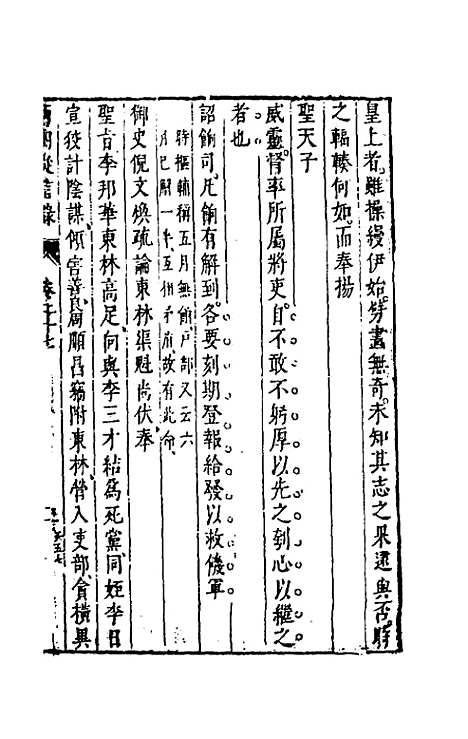 皇上者雖操縵伊始籌畫無奇未知其志之果逮與否時
之輻輳何如而奉揚
聖天子
威靈督率所屬將吏自不敢不躬厚以先之刲心以繼之
者也
詔餉司凡餉有解到各要刻期登報給發以救饑軍
時樞輔稱五月無餉戶部又云六
月已開一半互相矛盾故有此命
御史倪文煥疏論東林渠魁尚伏奉
聖旨李邦華東林高足何與李三才結為死黨同姪李日
宣狡計陰謀傾害善良周順昌竊附東林營入吏部貪橫異
兩朝從信錄 卷二十七